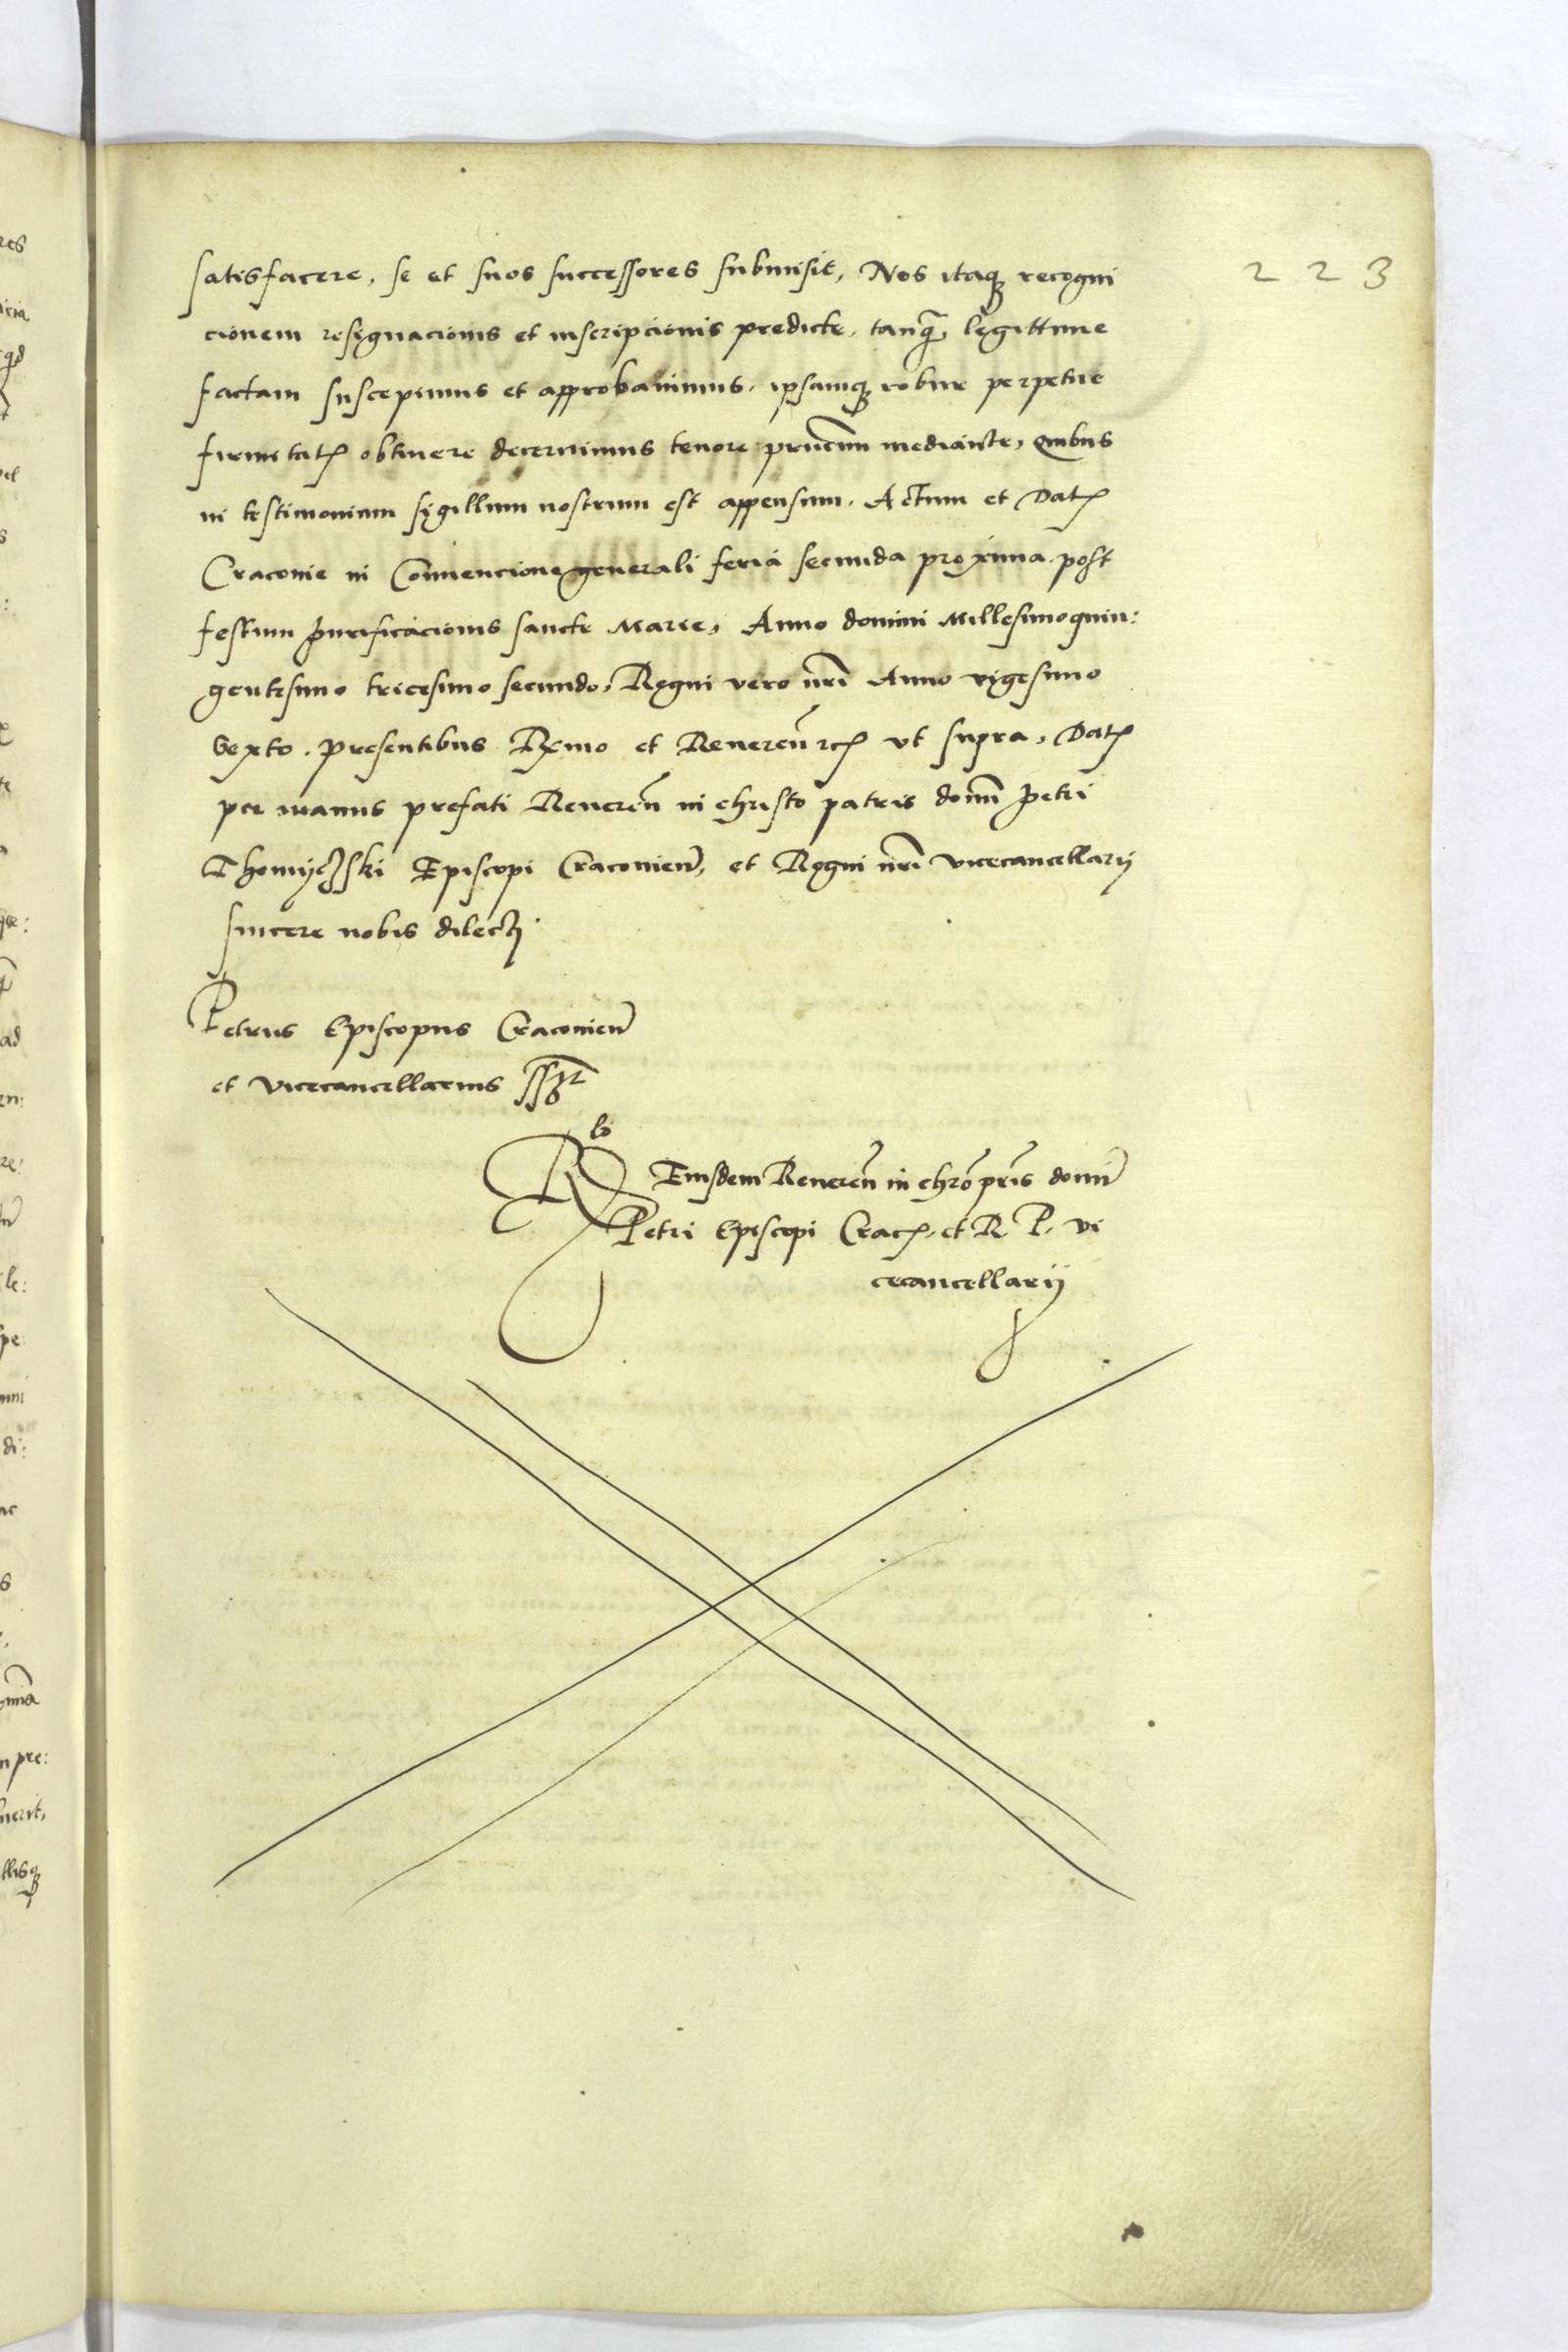 223
satisfacere, se et suos successores submisit, Nos itaq3 recogni
cionem resignacionis et inscripcionis predicte, tanq̃, legittime
factam suscepimus et approbavimus, ipsamq3 robur perpetue
firmitatꝭ obtinere decernimus tenore pñcium mediante, quibus
in testimonium sigillum nostrum est appensum. Actum et Datꝭ
Craconie in Convencione generali feria secunda proxima post
festum purificacionis sancte Marie, Anno domini Millesimoquin:
gentesimo tricesimo secundo, Regni vero nr̃i Anno vigesimo
Sexto. presentibus Rx̃mo et Reveren̄ rcꝭ ut supra, Datꝭ
per manus prefati Reveren̄ in christo patris domĩ Petri
Thomyczski Episcopi Craconien̄, et Regni nr̃i vicecancellarij
sincere nobis dilecti
Petrus Episcopus Craconien̄
et vicecancellarius
Rᵒ Eiusdem Reveren̄ in chrõ pr̃is domĩ
Petri Episcopi Cracꝭ, et R P. vi
cecancellarij